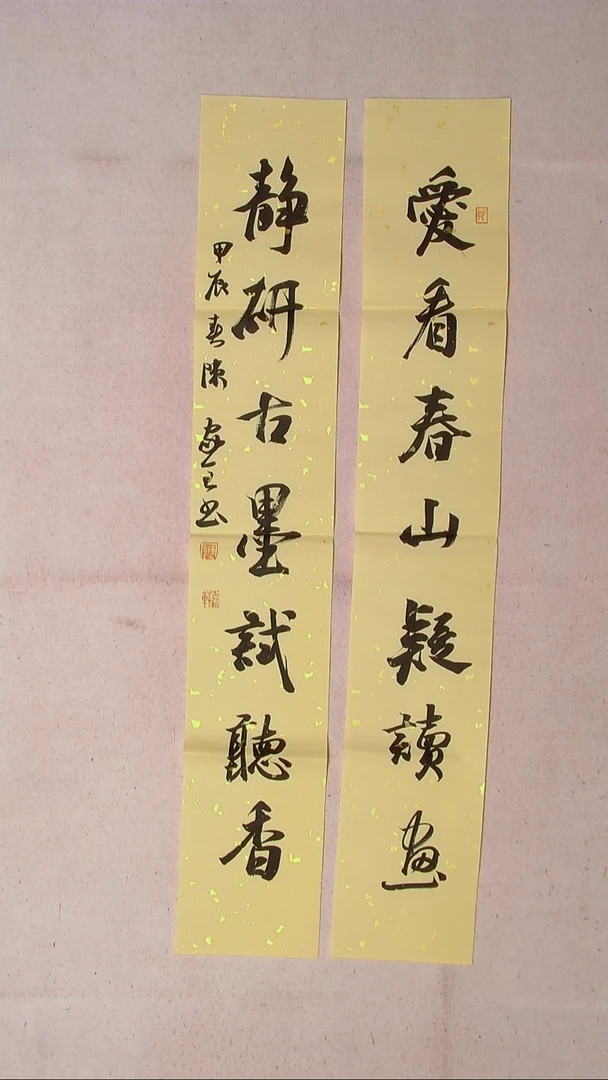 愛看春山疑讀畫
静研古墨試聽香
甲辰春陳
書